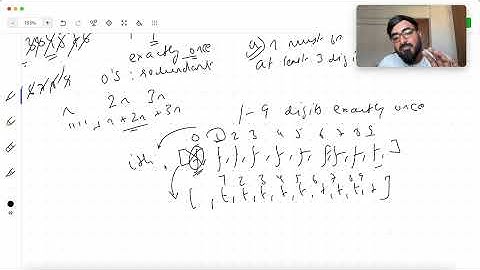 1
exactly once
0's : redundant
a) n must be
at least 3 digi
n 2n 3n
"" , n + 2n + 3n
1-9 digits exactly once
0 1 2 3 4 5 6 7 8 9
ith, [ f, f, f, f, f, f, f, f, f, ]
1 2 3 4 5 6 7 8 9
[ , t, t, t, t, t, t, t, t, t ]